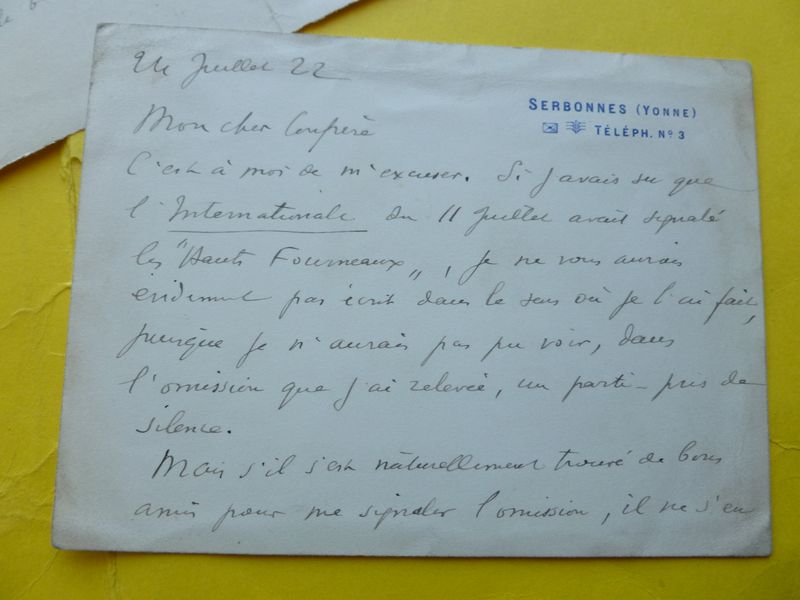 24 Juillet 22
SERBONNES (YONNE)
TÉLÉPH. Nº 3
Mon cher Confrère
C'est à moi de m'excuser. Si j'avais su que
l'Internationale du 11 Juillet avait signalé
les "Hauts Fourneaux", je ne vous aurais
évidemment pas écrit dans le sens où je l'ai fait,
puisque je n'aurais pas pu voir, dans
l'omission que j'ai relevée, un parti-pris de
silence.
Mais s'il s'est naturellement trouvé de bons
amis pour me signaler l'omission, il ne s'en